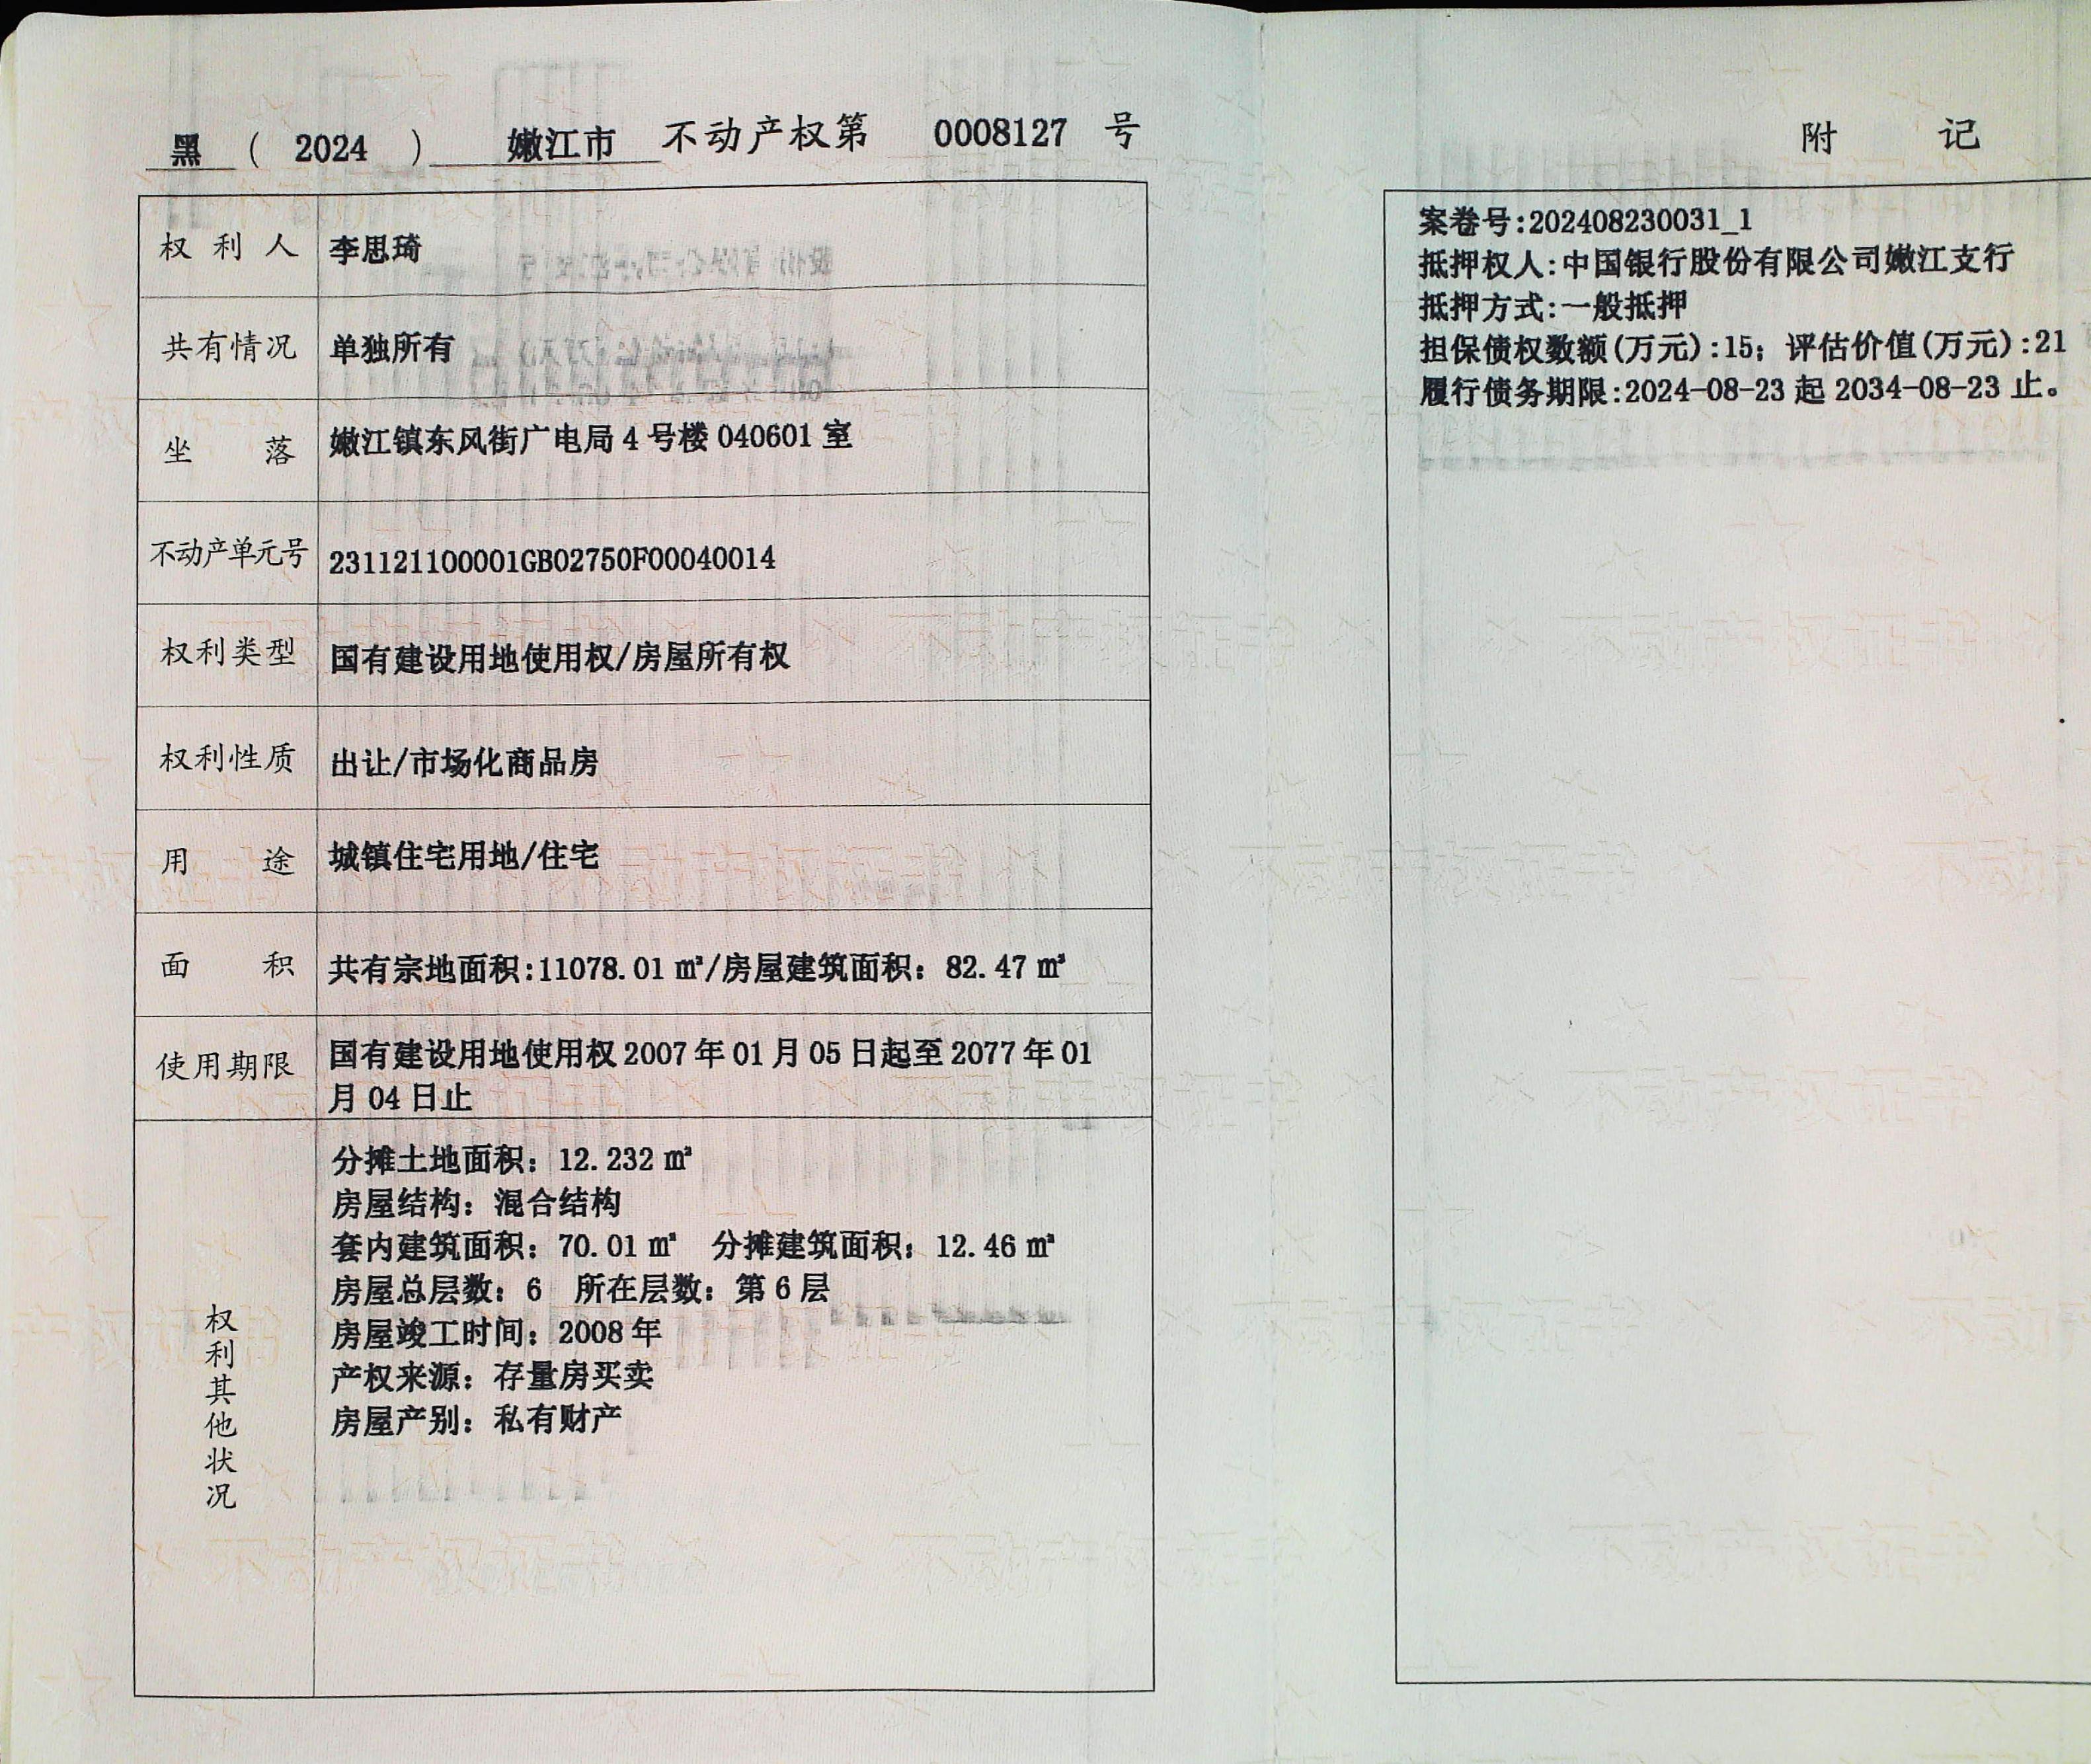 黑 ( 2024 ) 嫩江市 不动产权第 0008127 号
权利人 李思琦
共有情况 单独所有
坐落 嫩江镇东风街广电局4号楼040601室
不动产单元号 231121100001GB02750F00040014
权利类型 国有建设用地使用权/房屋所有权
权利性质 出让/市场化商品房
用途 城镇住宅用地/住宅
面积 共有宗地面积:11078.01㎡/房屋建筑面积：82.47㎡
使用期限 国有建设用地使用权2007年01月05日起至2077年01
月04日止
权利其他状况
分摊土地面积：12.232㎡
房屋结构：混合结构
套内建筑面积：70.01㎡ 分摊建筑面积：12.46㎡
房屋总层数：6 所在层数：第6层
房屋竣工时间：2008年
产权来源：存量房买卖
房屋产别：私有财产
附记
案卷号:202408230031_1
抵押权人:中国银行股份有限公司嫩江支行
抵押方式:一般抵押
担保债权数额(万元):15；评估价值(万元):21
履行债务期限:2024-08-23起2034-08-23止。